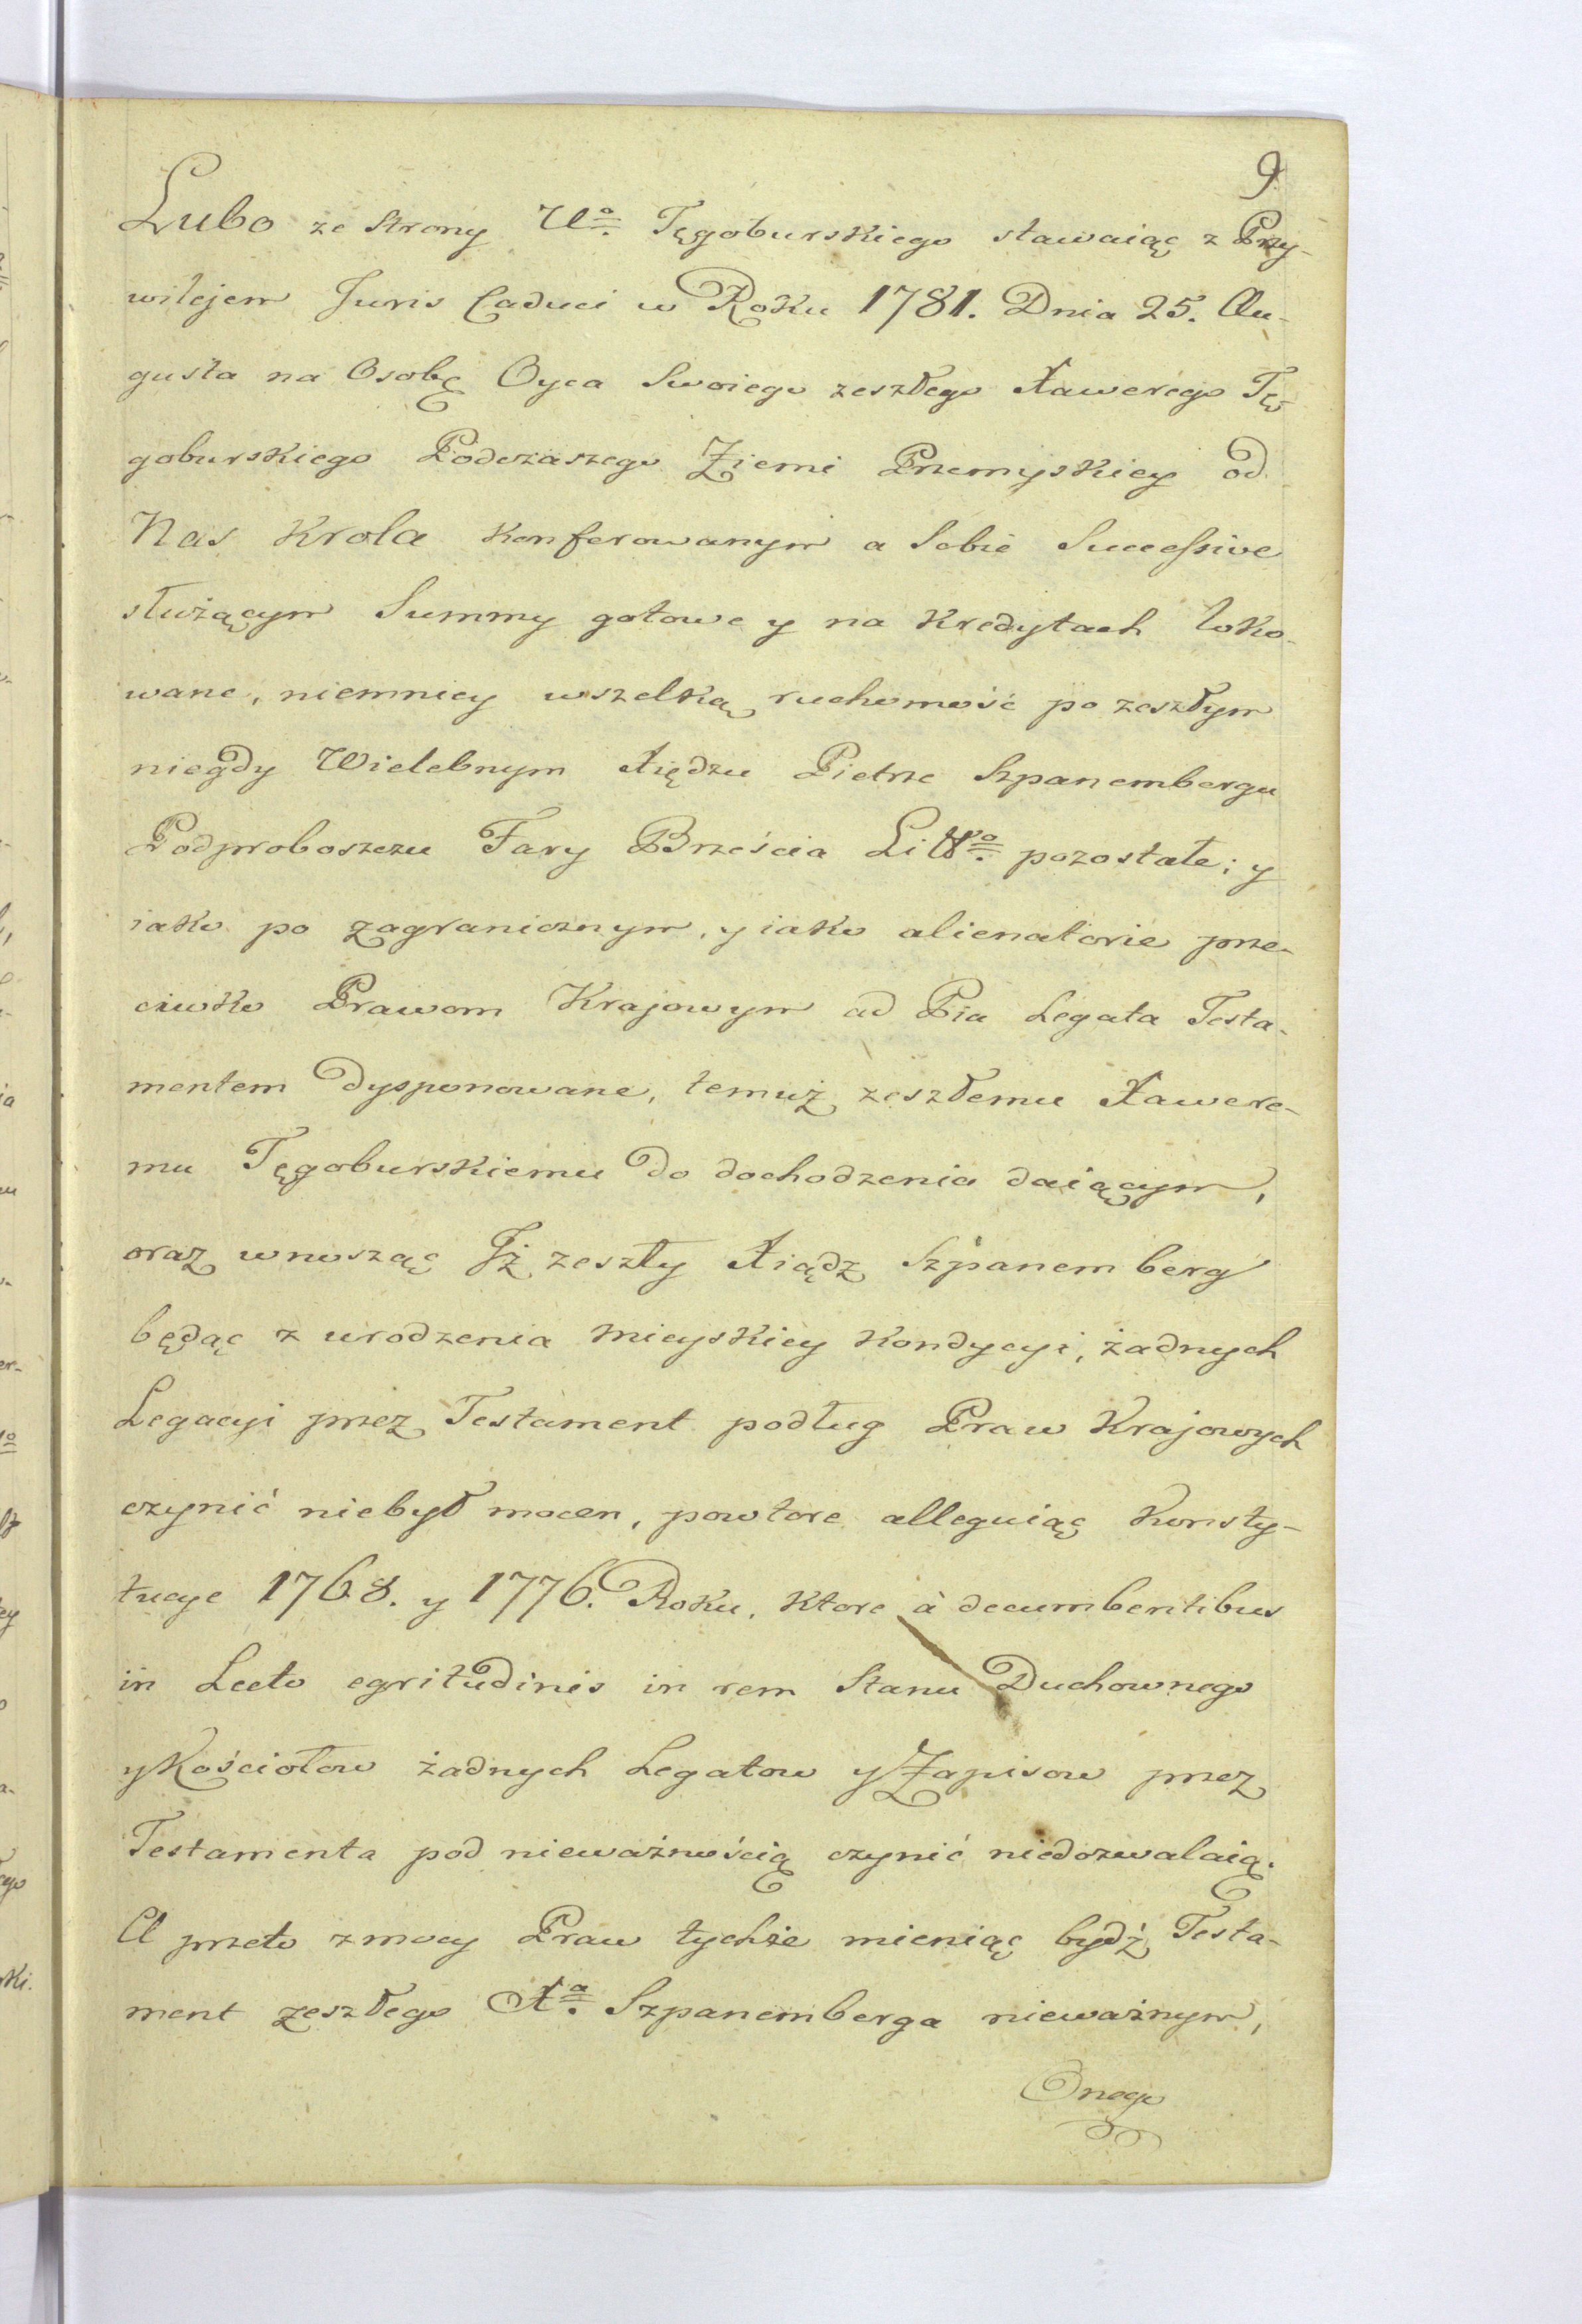 9
Lubo ze strony Uº. Tęgoburskiego stawaiąc z Przy-
wilejem Juris Caduci w Roku 1781. Dnia 25. Au-
gusta na Osobę Oyca Swoiego zeszłego Xawerego Tę-
goburskiego Podczaszego Ziemi Przemyskiey od
Nas Krola konferowanym a Sobie Successive
służącym Summy gotowe y na Kredytach loko-
wane, niemniey wszelką ruchomość po zeszłym
niegdy Wielebnym Xiędzu Pietrze Szpanembergu
Podproboszczu Fary Brześcia Littº. pozostałe; y
iako po zagranicznym, y iako alienatorie prze-
ciwko Prawom Krajowym ad Pia Legata Testa-
mentem dysponowane, temuż zeszłemu Xawere-
mu Tęgoburskiemu do dochodzenia daiącym,
oraz wnosząc Iż zeszły Xiądz Szpanemberg
będąc z urodzenia mieyskiey Kondycyi, żadnych
Legacyi przez Testament podług Praw Krajowych
czynić niebył mocen, powtore alleguiąc Konsty-
tucye 1768. y 1776. Roku, ktore à decumbentibus
in Lecto egritudinis in rem Stanu Duchownego
y Kościołow żadnych Legatow y Zapisow przez
Testamenta pod nieważnością czynić niedozwalaią.
A przeto z mocy Praw tychże mieniąc bydź Testa-
ment zeszłego Xª. Szpanemberga nieważnym,
Onego